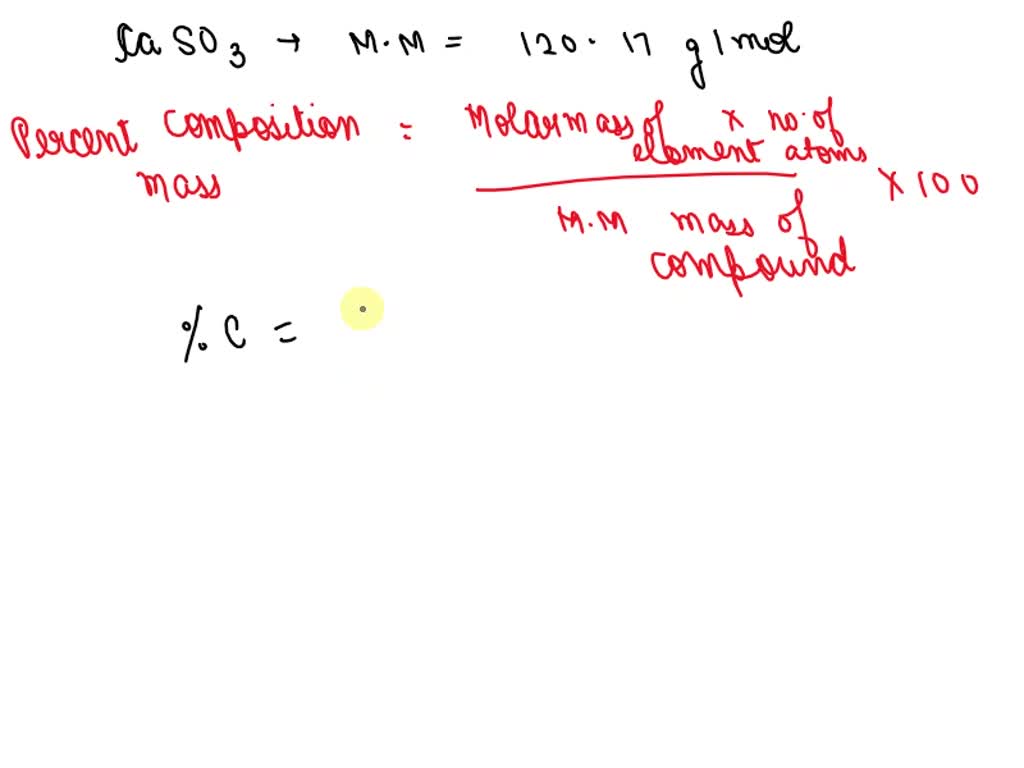 CaSO3 → M.M = 120.17 g/mol
Percent composition = Molar mass of element × no. of atoms
mass
M.M mass of compound
× 100
% C =